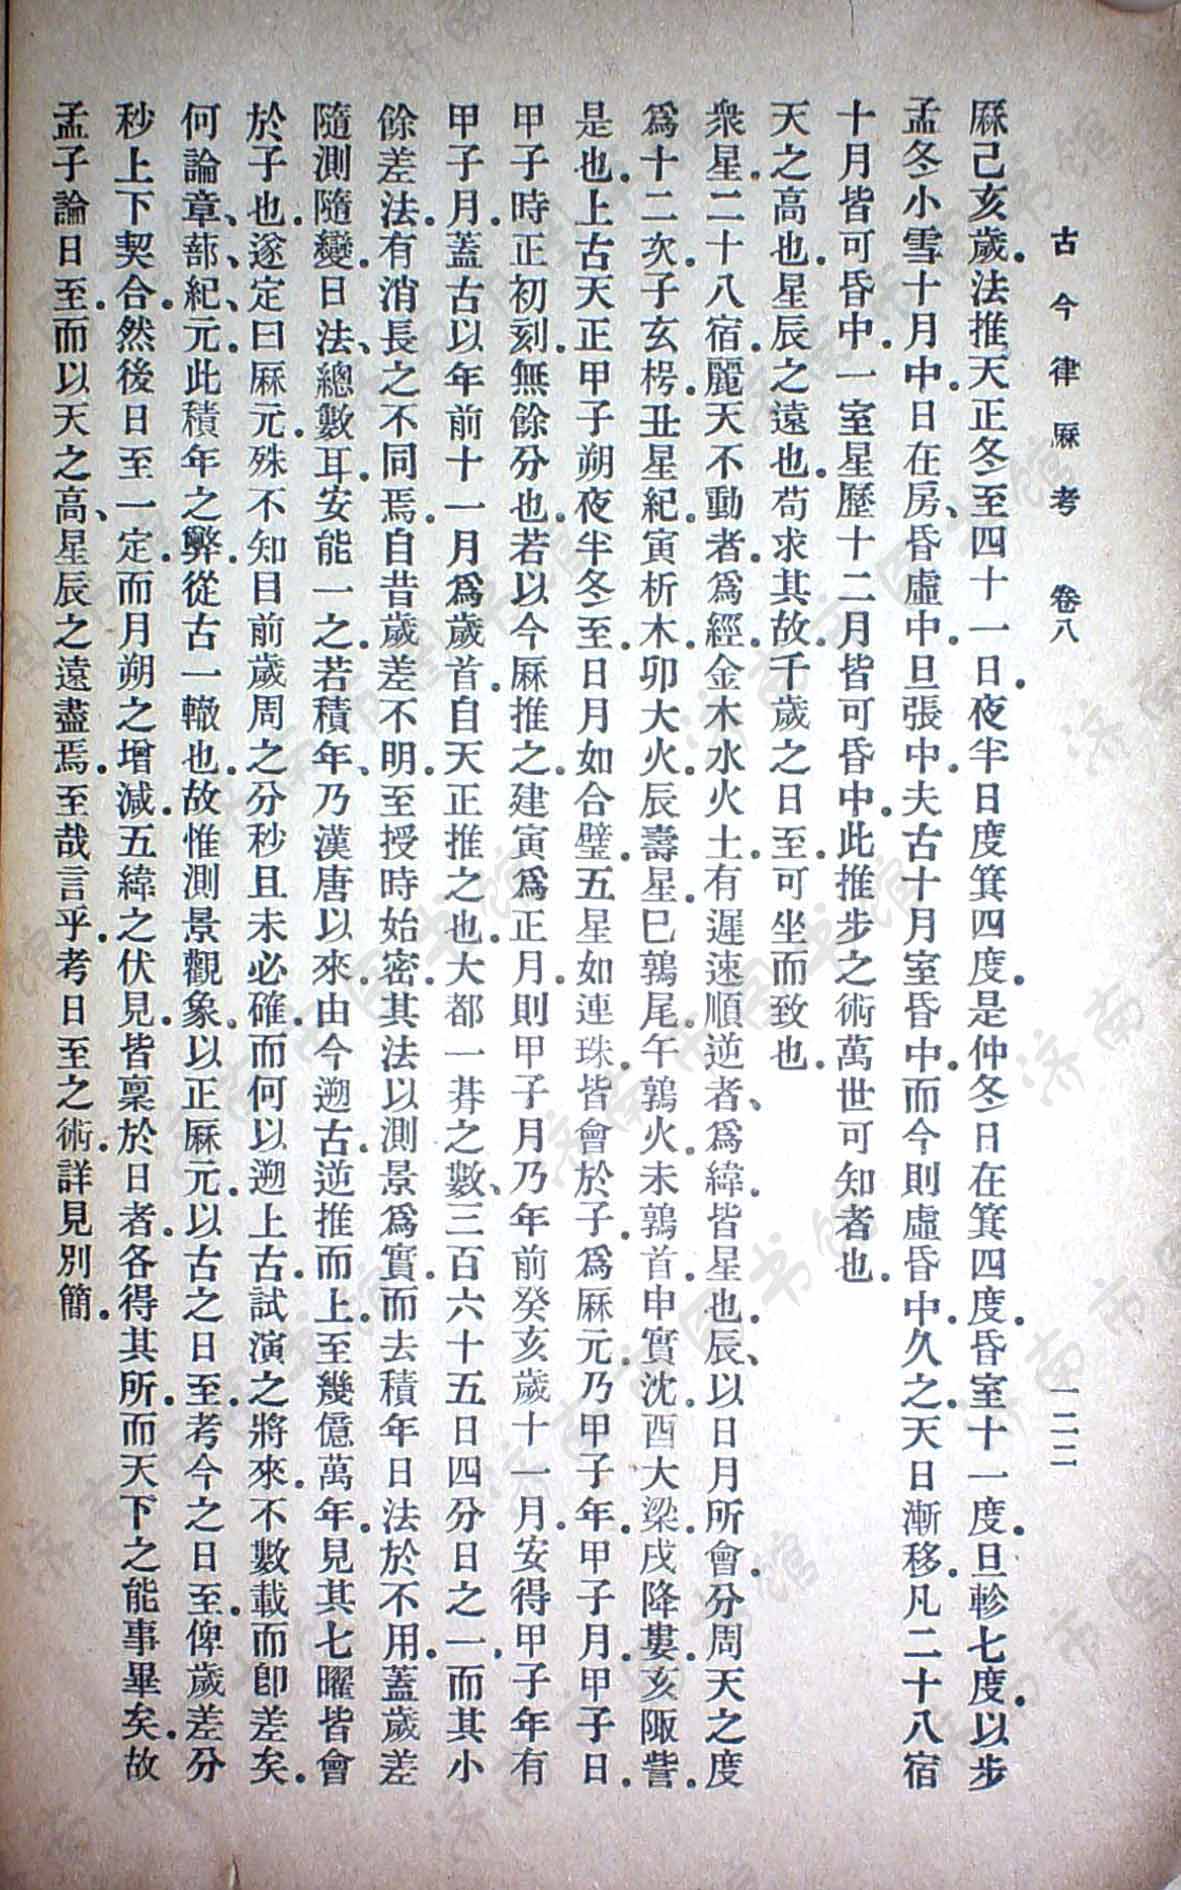 古今律厤考　卷八　一二二
厤己亥歲法推天正冬至四十一日夜半日度箕四度是仲冬日在箕四度昏室十一度旦軫七度以步
孟冬小雪十月中日在房昏虛中旦張中夫古十月室昏中而今則虛昏中久之天日漸移凡二十八宿
十月皆可昏中一室星歷十二月皆可昏中此推步之術萬世可知者也
天之高也星辰之遠也苟求其故千歲之日至可坐而致也
衆星二十八宿麗天不動者爲經金木水火土有遲速順逆者爲緯皆星也辰以日月所會分周天之度
爲十二次子玄枵丑星紀寅析木卯大火辰壽星巳鶉尾午鶉火未鶉首申實沈酉大梁戌降婁亥陬訾
是也上古天正甲子朔夜半冬至日月如合璧五星如連珠皆會於子爲厤元乃甲子年甲子月甲子日
甲子時正初刻無餘分也若以今厤推之建寅爲正月則甲子月乃年前癸亥歲十一月安得甲子年有
甲子月蓋古以年前十一月爲歲首自天正推之也大都一朞之數三百六十五日四分日之一而其小
餘差法有消長之不同焉自昔歲差不明至授時始密其法以測景爲實而去積年日法於不用蓋歲差
隨測隨變日法總數耳安能一之若積年乃漢唐以來由今遡古逆推而上至幾億萬年見其七曜皆會
於子也遂定曰厤元殊不知目前歲周之分秒且未必確而何以遡上古試演之將來不數載而卽差矣
何論章蔀紀元此積年之弊從古一轍也故惟測景觀象以正厤元以古之日至考今之日至俾歲差分
秒上下契合然後日至一定而月朔之增減五緯之伏見皆稟於日者各得其所而天下之能事畢矣故
孟子論日至而以天之高星辰之遠盡焉至哉言乎考日至之術詳見別簡